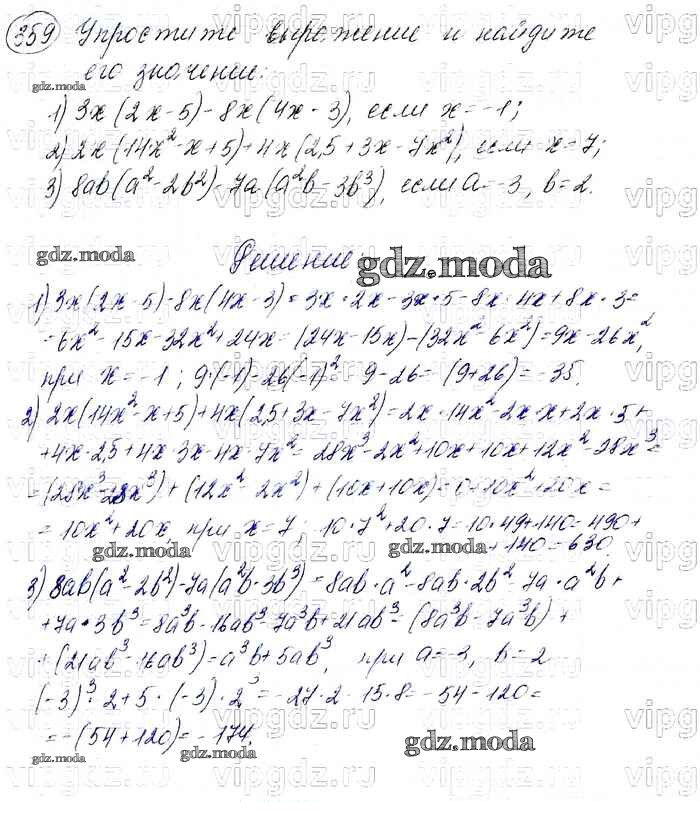 359 Упростите выражение и найдите
его значение:
gdz.moda
1) 3x(2x-5)-8x(4x-3), если x=-1;
2) 2x(14x²-x+5)+4x(2,5+3x-7x²), если x=7;
3) 8ab(a²-2b²)-7a(a²b-3b³), если a=-3, b=2.
gdz.moda Решение gdz.moda
1) 3x(2x-5)-8x(4x-3)=3x·2x-3x·5-8x·4x+8x·3=
=6x²-15x-32x²+24x=(24x-15x)-(32x²-6x²)=9x-26x²,
при x=-1; 9·(-1)-26(-1)²=-9-26=-(9+26)=-35.
2) 2x(14x²-x+5)+4x(2,5+3x-7x²)=2x·14x²-2x·x+2x·5+
+4x·2,5+4x·3x-4x·7x²=28x³-2x²+10x+10x+12x²-28x³=
=(28x³-28x³)+(12x²-2x²)+(10x+10x)=0+10x²+20x=
=10x²+20x, при x=7; 10·7²+20·7=10·49+140=490+
+140=630.
gdz.moda gdz.moda
3) 8ab(a²-2b²)-7a(a²b-3b³)=8ab·a²-8ab·2b²-7a·a²b+
+7a·3b³=8a³b-16ab³-7a³b+21ab³=(8a³b-7a³b)+
+(21ab³-16ab³)=a³b+5ab³, при a=-3, b=2
(-3)³·2+5·(-3)·2³=-27·2-15·8=-54-120=
=-(54+120)=-174.
gdz.moda gdz.moda
vipgdz.ru